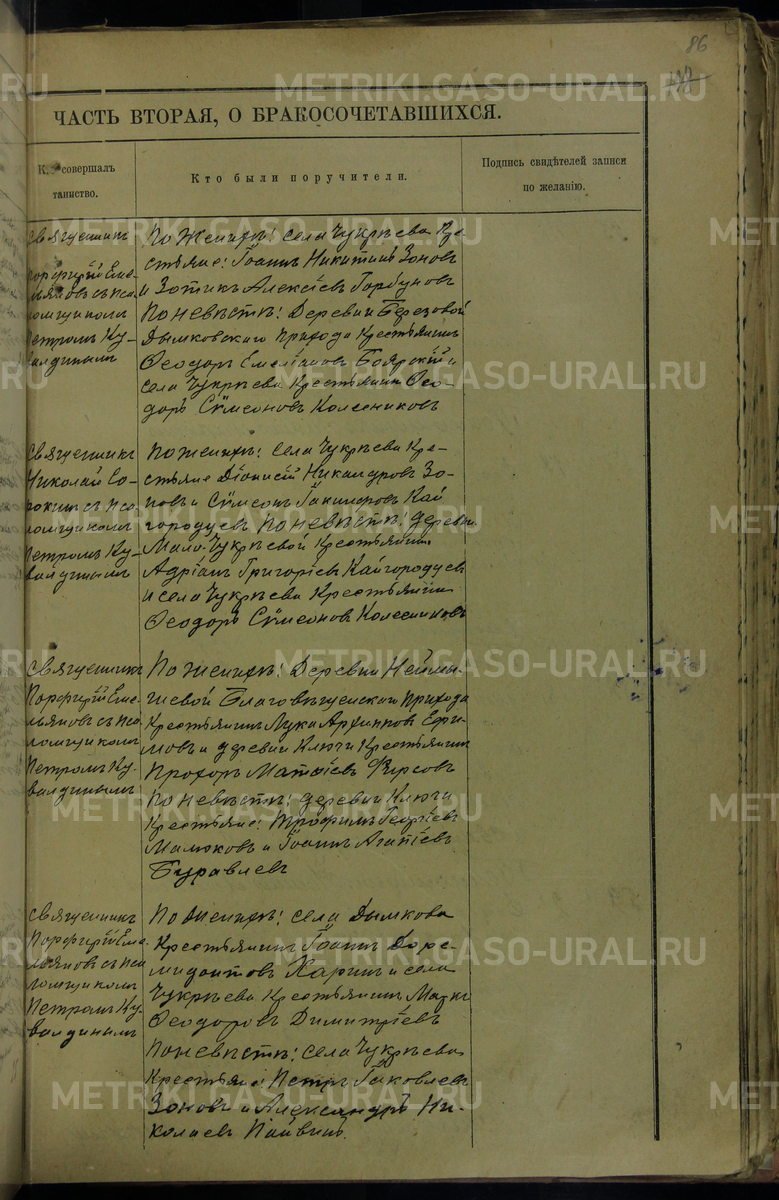 86
ЧАСТЬ ВТОРАЯ, О БРАКОСОЧЕТАВШИХСЯ.
К.. совершалъ
таинство.
Кто были поручители.
Подпись свидѣтелей записи
по желанію.
Священникъ
Порфирій Еме-
льяновъ съ пса-
ломщикомъ
Петромъ Ку-
валдинымъ
По женихѣ: села Чукрѣева Кре
стьяне: Іоаннъ Никитинъ Зоновъ
и Зотикъ Алексіевъ Горбуновъ
По невѣстѣ: Деревни Березовой
Дымковскаго прихода крестьянинъ
Ѳеодоръ Емеліановъ Боярскій и
села Чукрѣева крестьянинъ Ѳео-
доръ Сѵмеоновъ Колесниковъ
Священникъ
Николай Со-
рокинъ съ пса-
ломщикомъ
Петромъ Ку-
валдинымъ
По женихѣ: села Чукрѣева Кре-
стьяне Діонисій Никандровъ Зо-
новъ и Сѵмеонъ Кай
городцевъ По невѣстѣ: деревни
Мало-Чукрѣевой крестьянинъ
Адріанъ Григоріевъ Кайгородцевъ
и села Чукрѣева крестьянинъ
Ѳеодоръ Сѵмеоновъ Колесниковъ
Священникъ
Порфирій Еме-
льяновъ съ пса-
ломщикомъ
Петромъ Ку-
валдинымъ
По женихѣ: Деревни
Благовѣщенскаго прихода
Крестьянинъ Лука Архиповъ Ефи-
мовъ и деревни Ключи крестьянинъ
Прохоръ Матѳіевъ Ѳирсовъ
По невѣстѣ: деревни Ключи
крестьяне: Трофимъ Георгіевъ
Малюковъ и Іоаннъ Агапіевъ
Буравлевъ
Священникъ
Порфирій Еме-
льяновъ съ пса
ломщикомъ
Петромъ Ку-
валдинымъ
По женихѣ: села Дымкова
Крестьянинъ Іоаннъ Доре-
мидонтовъ Харинъ и села
Чукрѣева крестьянинъ Маркъ
Ѳеодоровъ Димитріевъ
По невѣстѣ: села Чукрѣева
Крестьяне: Петръ Іаковлевъ
Зоновъ и Александръ Ни-
колаевъ Пайвинъ.
METRIKI.GASO-URAL.RU